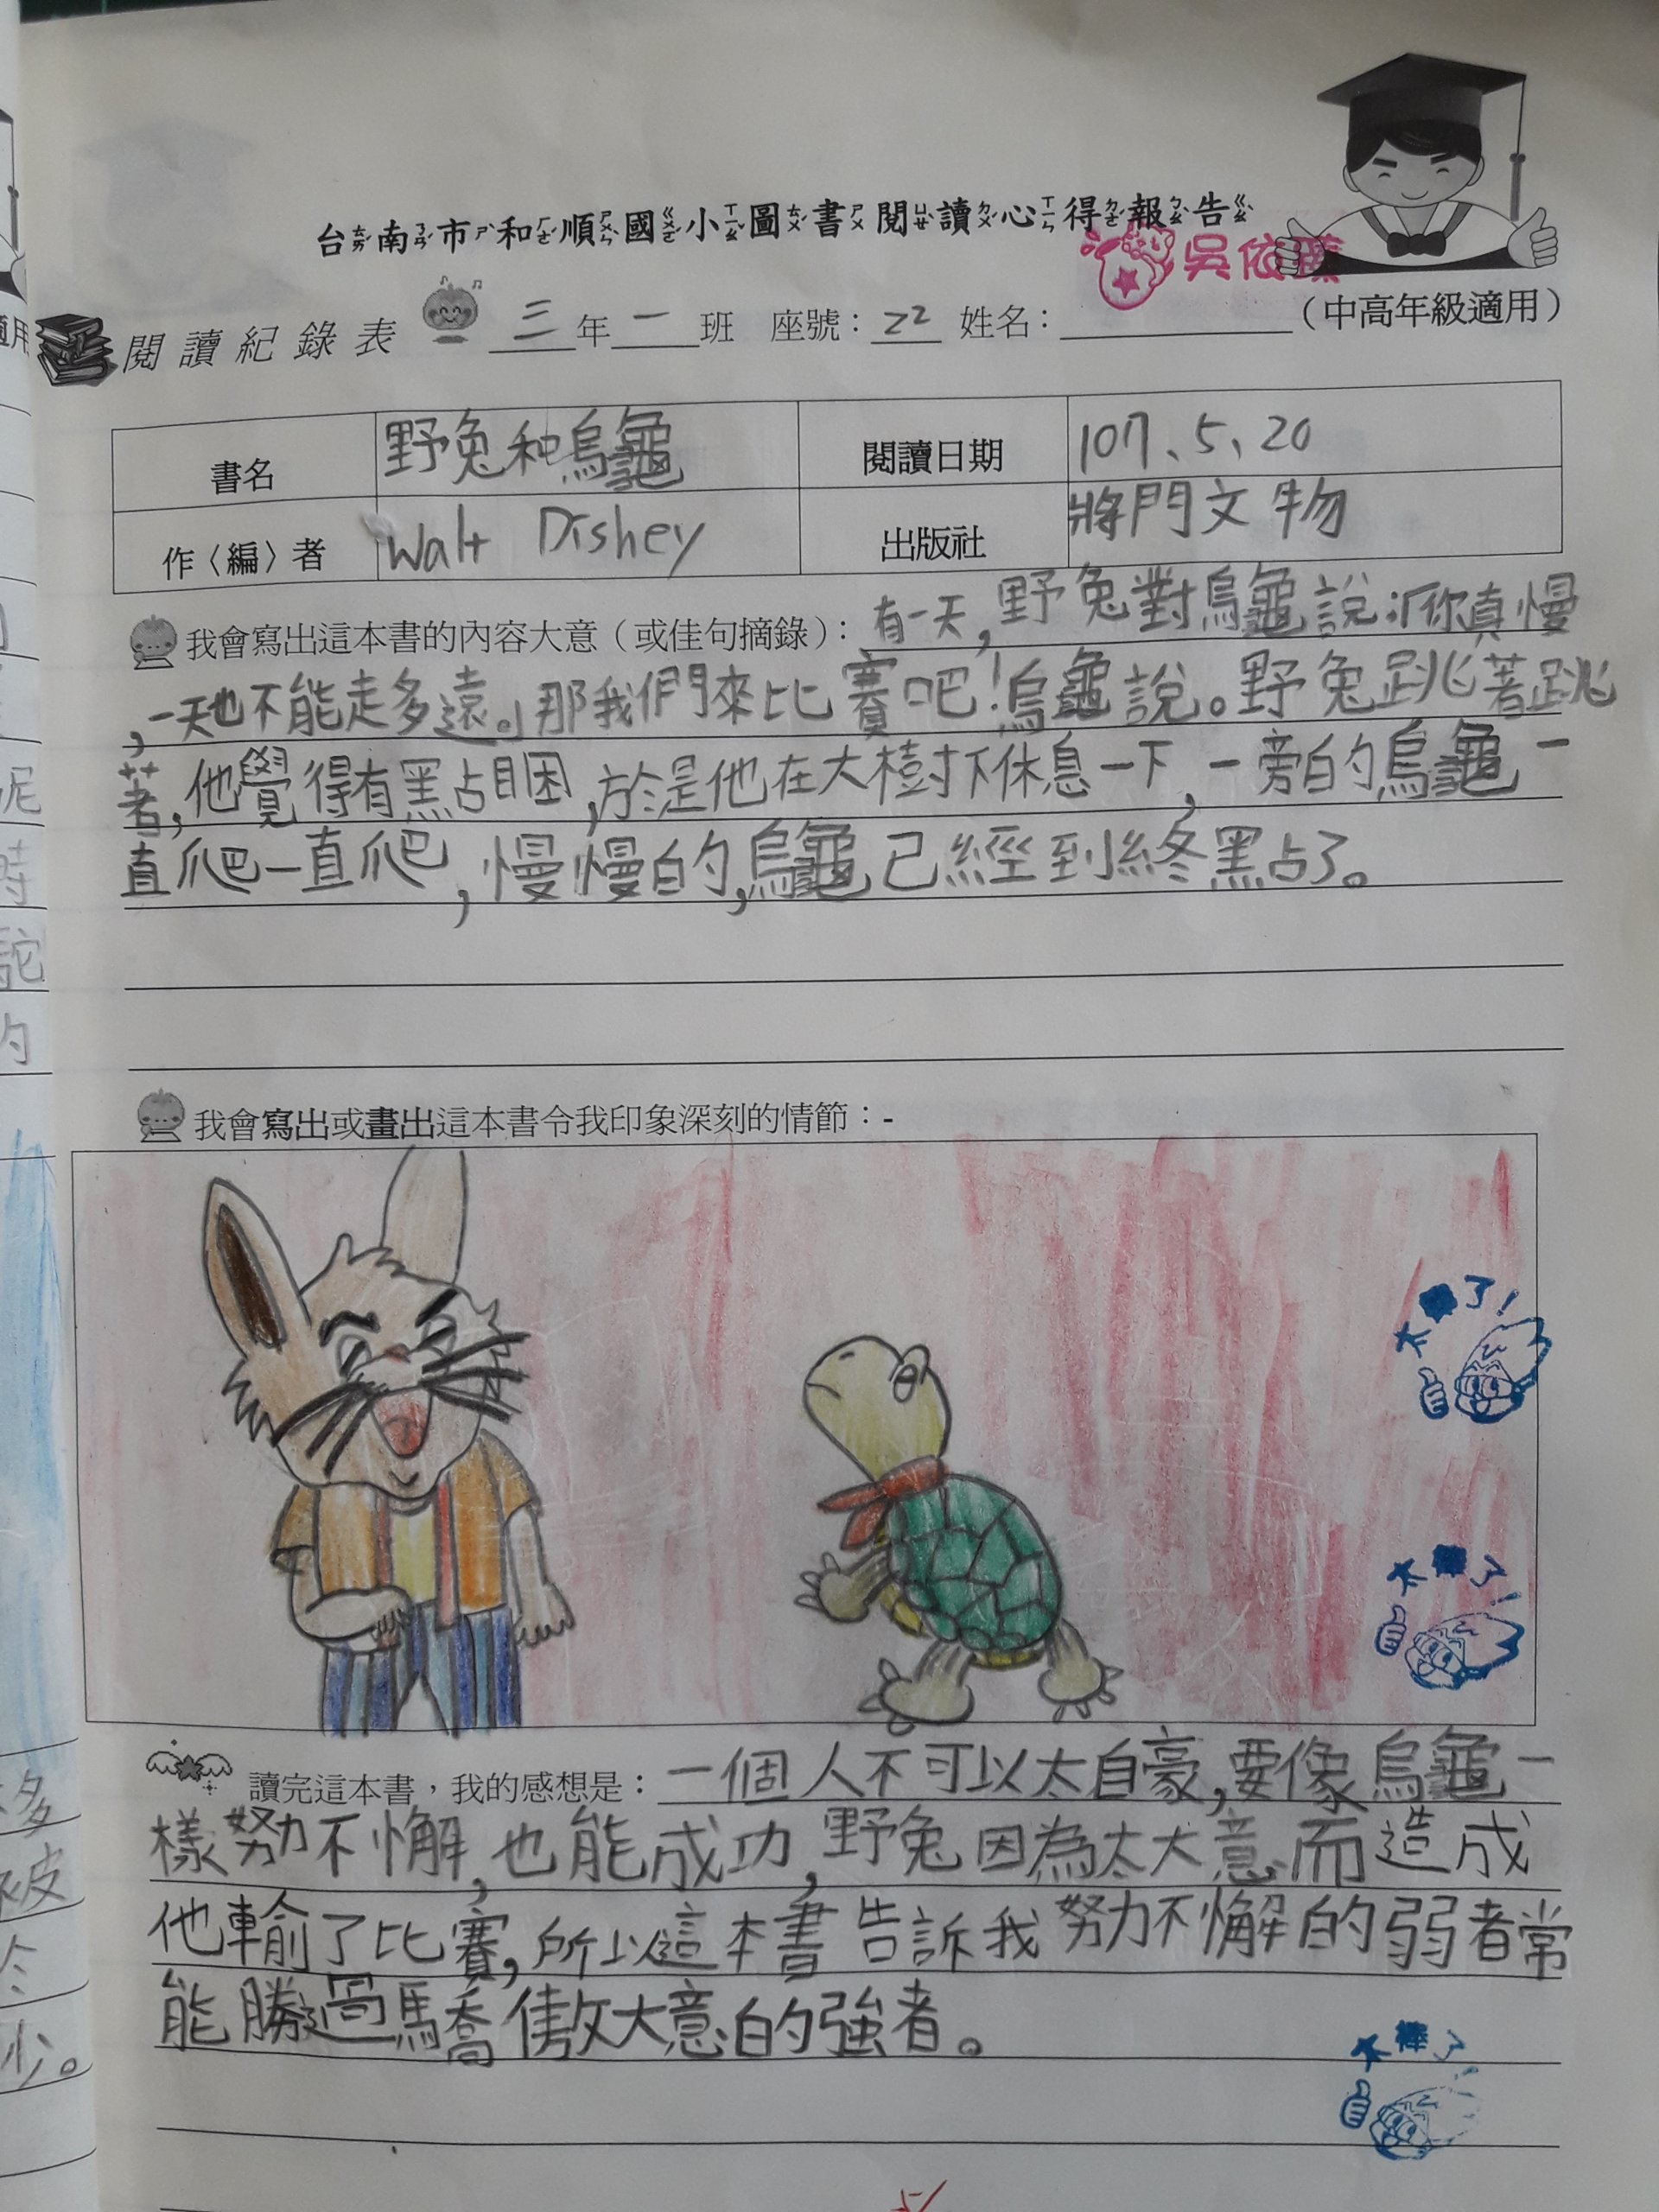 台南市和順國小圖書閱讀心得報告
吳依
閱讀紀錄表 三年一班 座號：22 姓名： （中高年級適用）
書名 野兔和烏龜 閱讀日期 107、5、20
作〈編〉者 Walt Dishey 出版社 將門文物
我會寫出這本書的內容大意（或佳句摘錄）：有一天，野兔對烏龜說：「你真慢
，一天也不能走多遠。」那我們來比賽吧！烏龜說。野兔跳著跳
著，他覺得有點睏，於是他在大樹下休息一下，一旁的烏龜一
直爬一直爬，慢慢的，烏龜已經到終點了。
我會寫出或畫出這本書令我印象深刻的情節：-
太棒了！
太棒了！
讀完這本書，我的感想是：一個人不可以太自豪，要像烏龜一
樣努力不懈，也能成功，野兔因為太大意而造成
他輸了比賽，所以這本書告訴我努力不懈的弱者常
能勝過驕傲大意的強者。
太棒了
5/